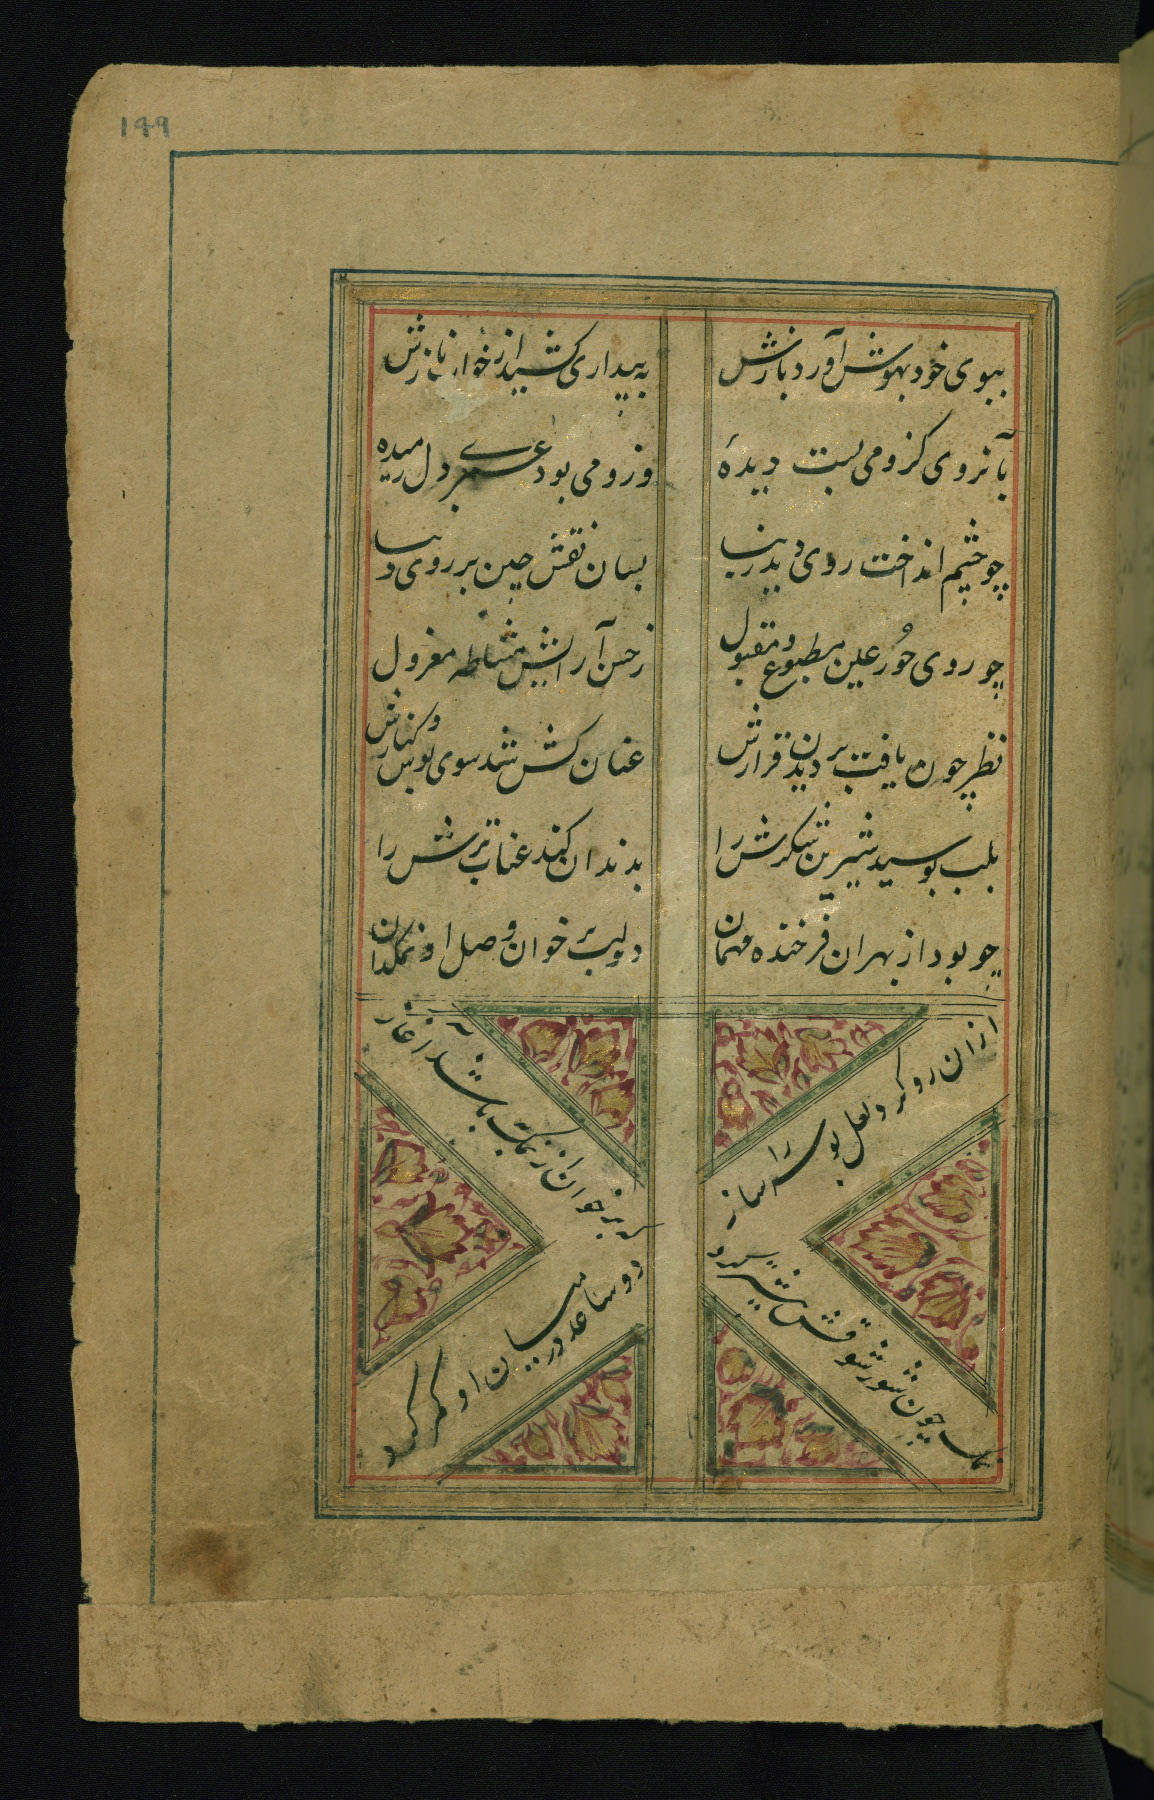 ۱۹۹
ببوی خود بهوش آورد بازش
به بیداری کشید از خواب نازش
بآنروی کزو می بست دیدهٔ
وزو می بود عمری دل رمیده
چو چشم انداخت روی دید زیبا
بسان نقش چین بر روی دیبا
چو روی حور عین مطبوع و مقبول
ز حسن آرایش مشاطه معزول
نظر چون یافت بر دیدن قرارش
عنان کش شد سوی بوس و کنارش
بلب بوسید شیرین شکرش را
بدندان کند عناب ترش را
چو بود از بهر آن فرخنده مهمان
دو لب بر خوان وصل او نمکدان
ازان رو کرد لعل بوسه را ساز
که بر خوان از نمک باشد آغاز
نمک چون شور شوقش بیشتر کرد
دو ساعد در میان او کمر کرد